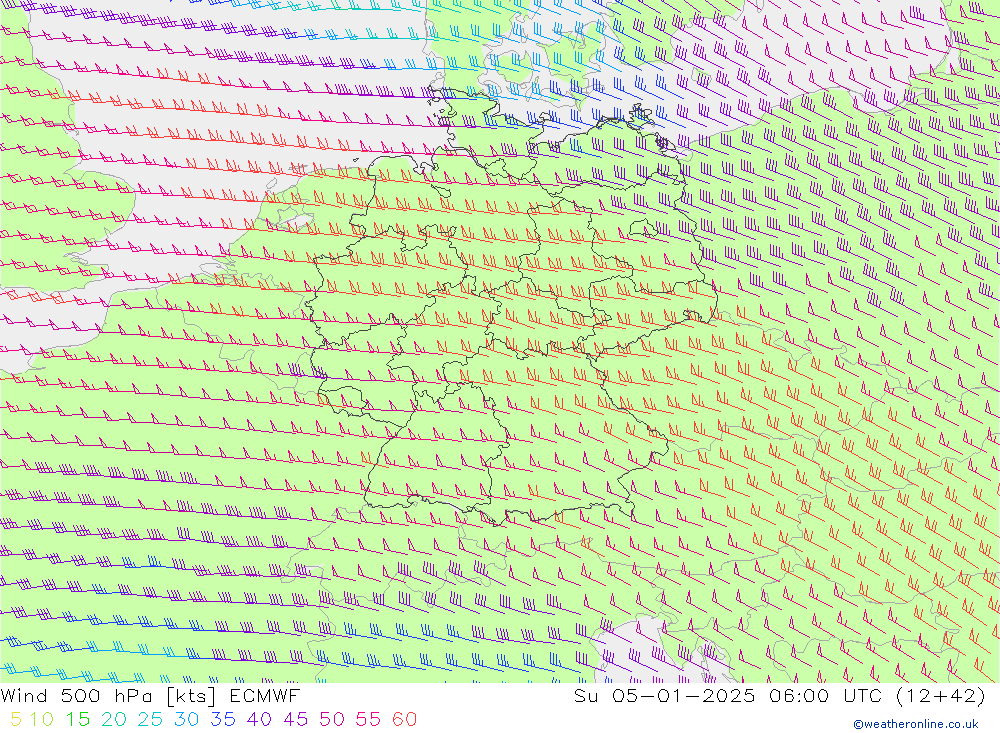 Wind 500 hPa [kts] ECMWF Su 05-01-2025 06:00 UTC (12+42)
5 10 15 20 25 30 35 40 45 50 55 60
©weatheronline.co.uk